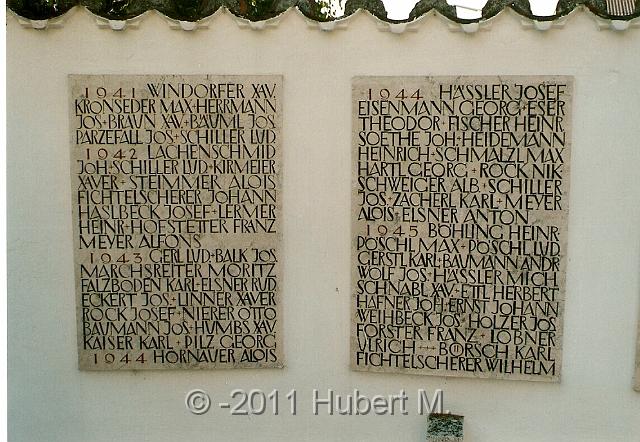 1941 WINDORFER XAV.
KRONSEDER MAX + HERRMANN
JOS + BRAUN XAV + BÄUML JOS
PARZEFALL JOS + SCHILLER LUD
1942 LACHENSCHMID
JOH + SCHILLER LUD + KIRMEIER
XAVER + STEIMMER ALOIS
FICHTELSCHERER JOHANN
HASLBECK JOSEF + LERMER
HEINR + HOFSTETTER FRANZ
MEYER ALFONS
1943 GERL LUD + BALK JOS
MARCHSREITER MORITZ
FALZBODEN KARL + ELSNER RUD
ECKERT JOS + LINNER XAVER
ROCK JOSEF + NIERER OTTO
BAUMANN JOS + HUMBS XAV
KAISER KARL + PILZ GEORG
1944 HORNAUER ALOIS
1944 HÄSSLER JOSEF
EISENMANN GEORG + ESER
THEODOR + FISCHER HEINR
SOETHE JOH + HEIDEMANN
HEINRICH + SCHMALZL MAX
HARTL GEORG + ROCK NIK
SCHWEIGER ALB + SCHILLER
JOS + ZACHERL KARL + MEYER
ALOIS + ELSNER ANTON
1945 BÖHLING HEINR
PÖSCHL MAX + PÖSCHL LUD
GERSTL KARL + BAUMANN ANDR
WOLF JOS + HÄSSLER MICH
SCHNABL XAV + ETTL HERBERT
HAFNER JOH + ERNST JOHANN
WEIHBECK JOS + HOLZER JOS
FORSTER FRANZ + LOBNER
ULRICH BORSCH KARL
FICHTELSCHERER WILHELM
© -2011 Hubert M